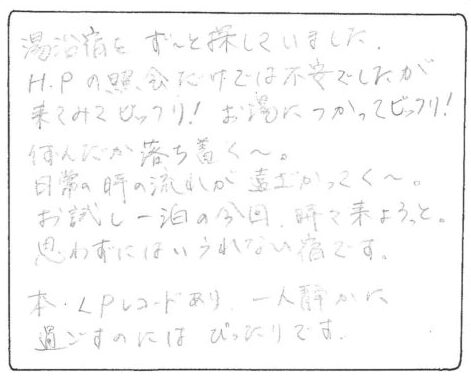 湯治宿を ず〜と探していました.
H.Pの照会だけでは不安でしたが
来てみてビックリ! お湯につかってビックリ!
何んだか落ち着く〜。
日常の時の流れが遠ざかってく〜。
お試し一泊の今回、時々来ようっと。
思わずにはいられない宿です。
本・LPレコードあり、一人静かに
過ごすのには ぴったりです.